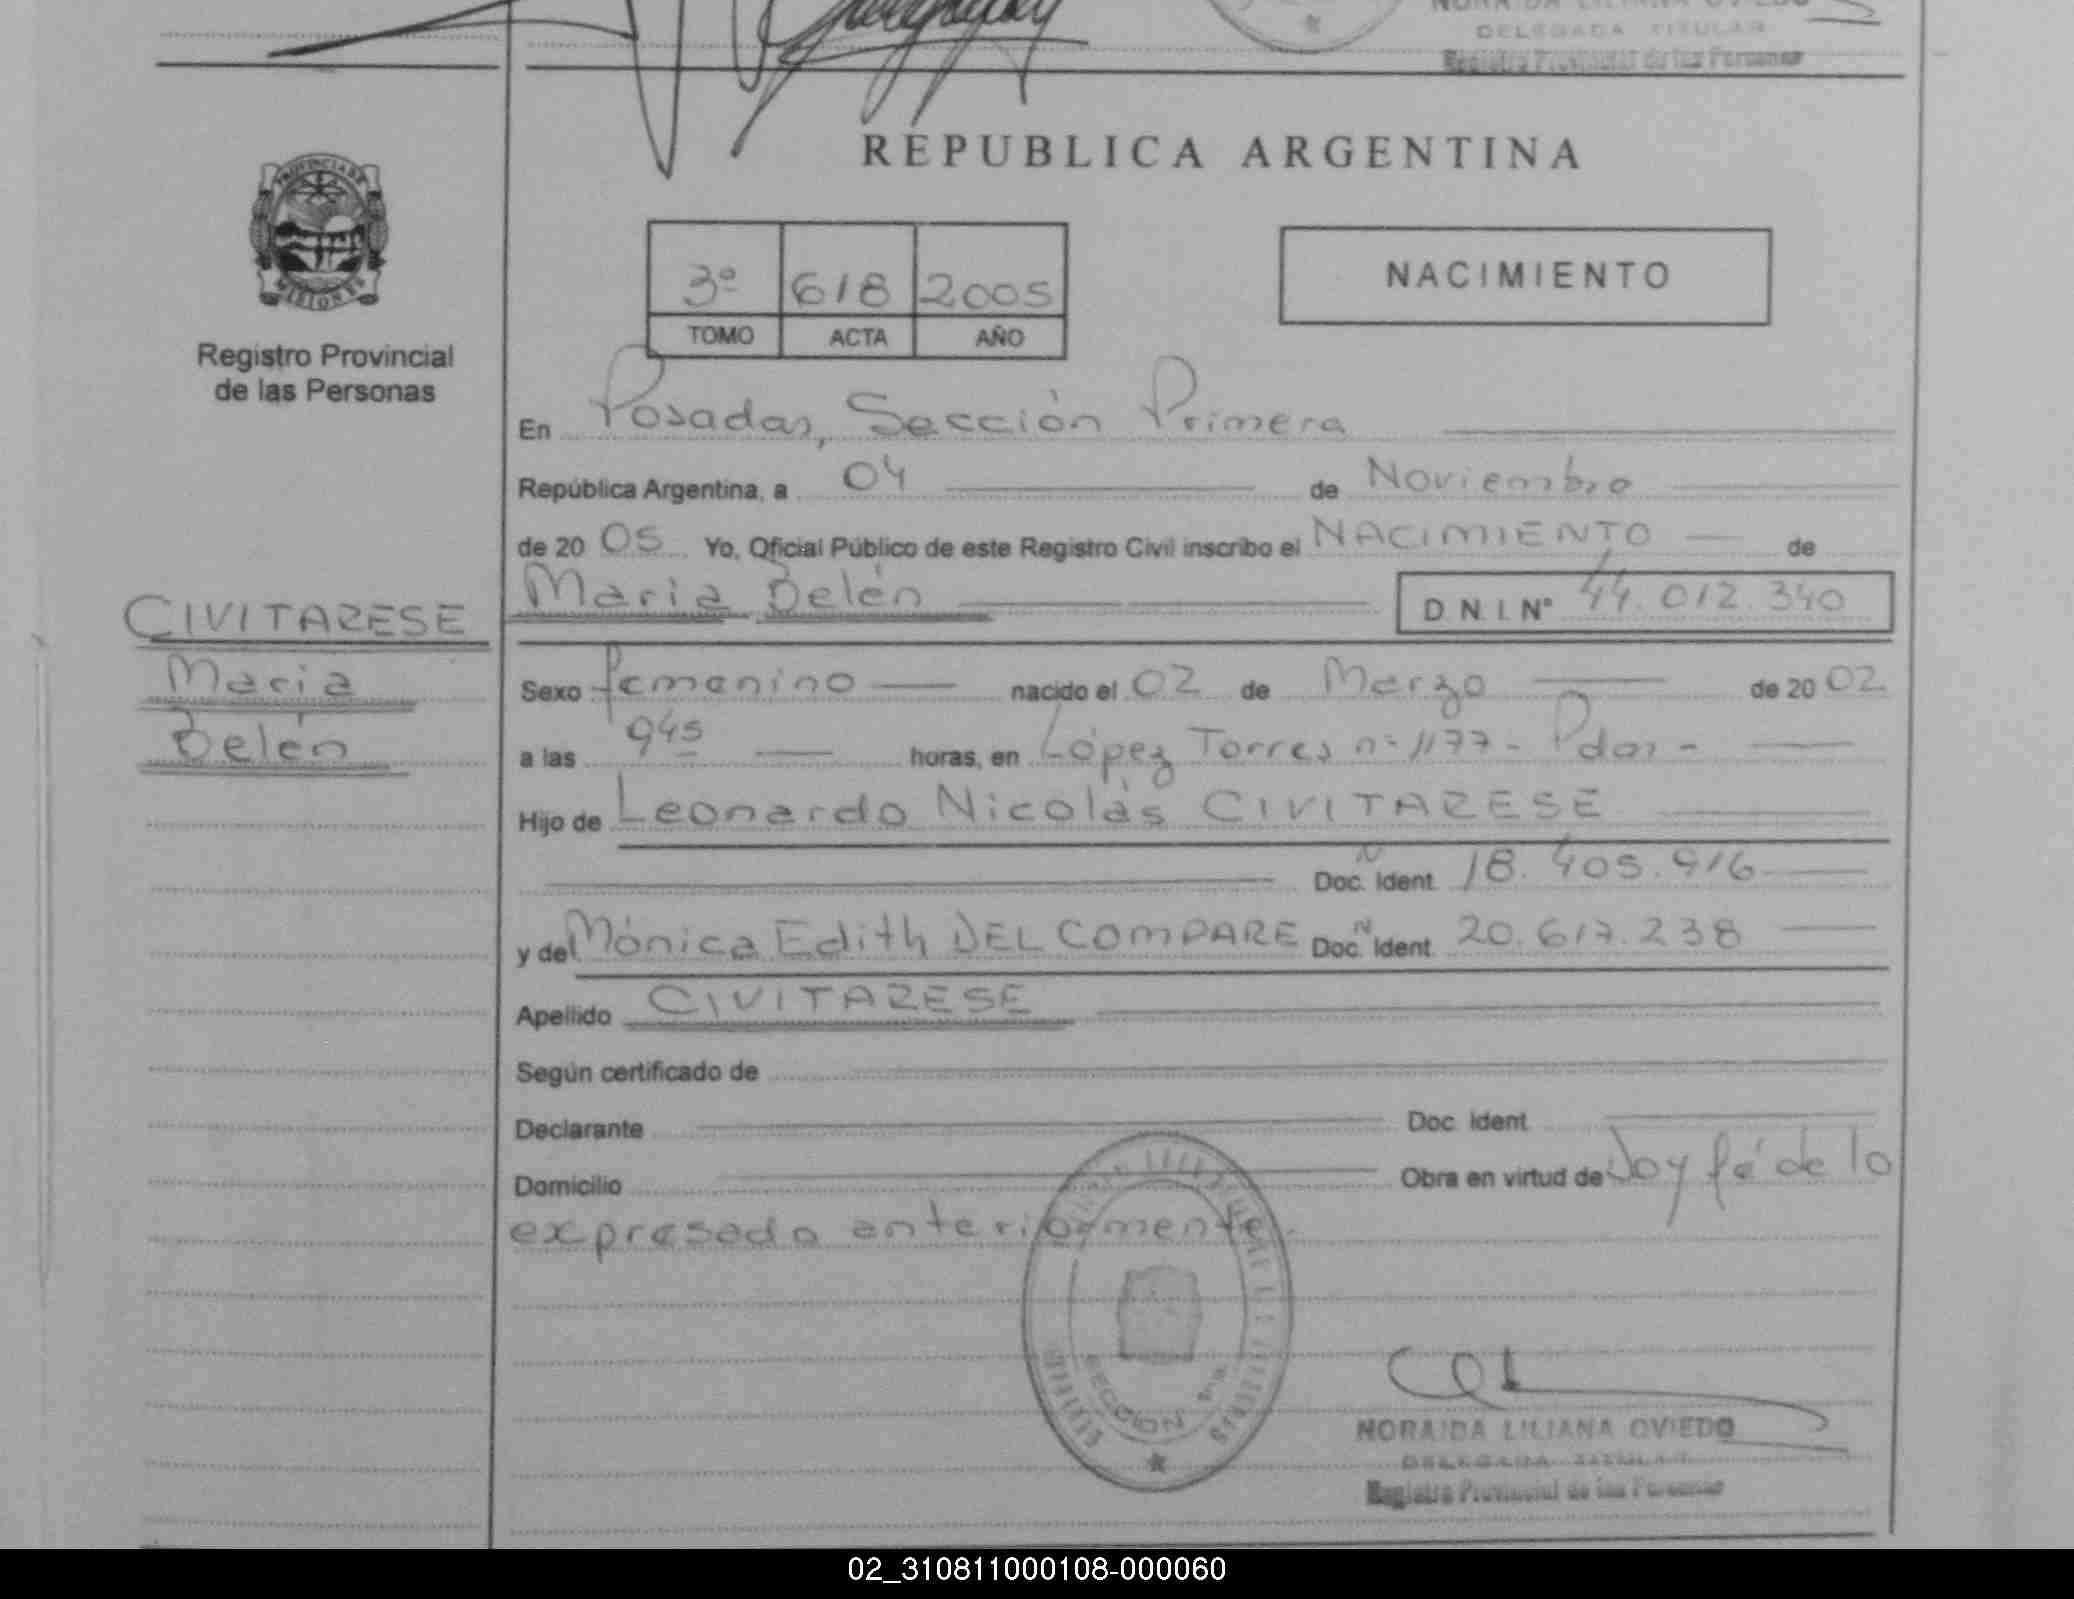 NORAIDA LILIANA OVIEDO
DELEGADA TITULAR
Registro Provincial de las Personas
REPUBLICA ARGENTINA
PROVINCIA DE
MISIONES
Registro Provincial
de las Personas
3º 618 2005
TOMO ACTA AÑO
NACIMIENTO
En Posadas, Sección Primera
República Argentina, a 04 de Noviembre
de 20 05 Yo, Oficial Público de este Registro Civil inscribo el NACIMIENTO de
María Belén D.N.I. Nº 44.012.340
CIVITARESE
María
Belén
Sexo femenino nacido el 02 de Marzo de 20 02
a las 945 horas, en López Torres nº 1177 - Pdas -
Hijo de Leonardo Nicolás CIVITARESE
Doc. Ident. N 18.405.916
y de Mónica Edith DEL COMPARE Doc. Ident. N 20.617.238
Apellido CIVITARESE
Según certificado de
Declarante Doc. Ident.
Domicilio Obra en virtud de Doy fé de lo
expresado anteriormente.
SECCION 1ra
NORAIDA LILIANA OVIEDO
DELEGADA TITULAR
Registro Provincial de las Personas
02_310811000108-000060